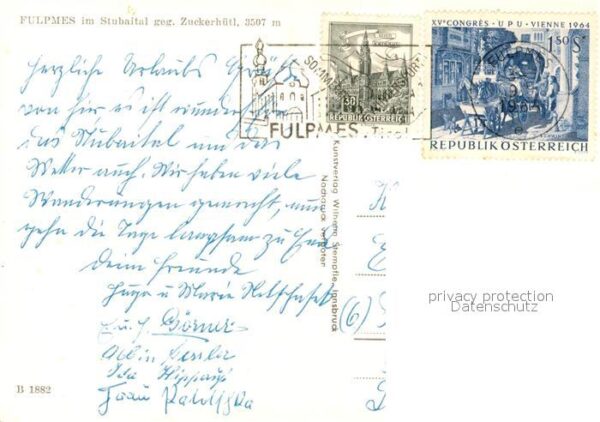 FULPMES im Stubaital geg. Zuckerhütl, 3507 m
Herzliche Urlaubs Grüße
von hier, es ist wunderbar
das Stubaital und das
Wetter auch. Wir haben viele
Wanderungen gemacht, nun
gehn die Tage langsam zu Ende
deine Freunde
Hugo u Maria
Börner
Frau
B 1882
Kunstverlag Wilhelm Stempfle, Innsbruck
Nachdruck verboten
30
REPUBLIK ÖSTERREICH
FULPMES, Tirol
XV CONGRÈS · UPU · VIENNE 1964
1.50 S
REPUBLIK ÖSTERREICH
FULPMES
(6)
privacy protection
Datenschutz